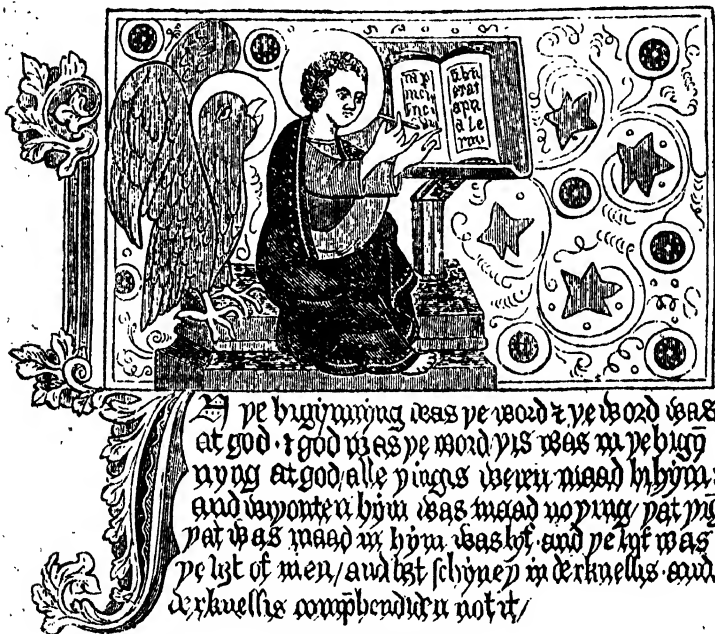 erat
IN þe bigynnyng was þe word ⁊ þe word was
at god · ⁊ god was þe word þis was in þe bigyn̄
nyng at god / alle þingis weren maad bi hym :
and wiþouten hym was maad no þing / þat þīg
þat was maad in hym was lyf · and þe lyf was
þe liȝt of men / and liȝt schyneþ in derknessis · and
derknessis comp̄hendiden not it /